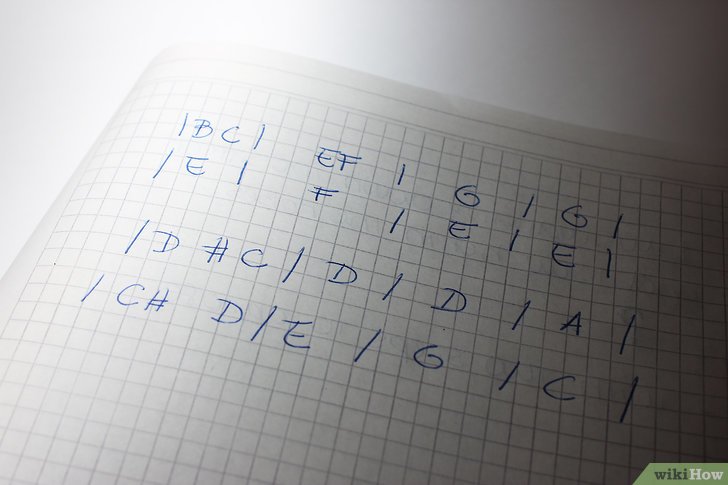 |BC| EF | G | G |
| E | F | E | E |
| D #C | D | D | A |
| C# D | E | G | C |
wikiHow